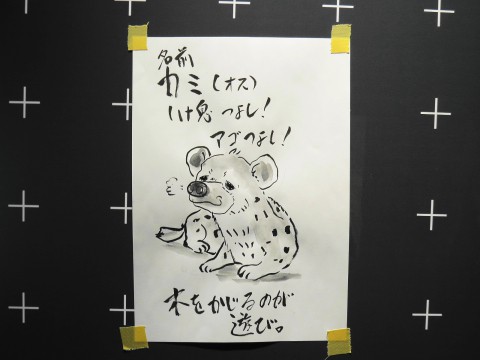 名前
カミ（オス）
いけ鬼 つよし！
アゴつよし！
木をかじるのが
遊び。